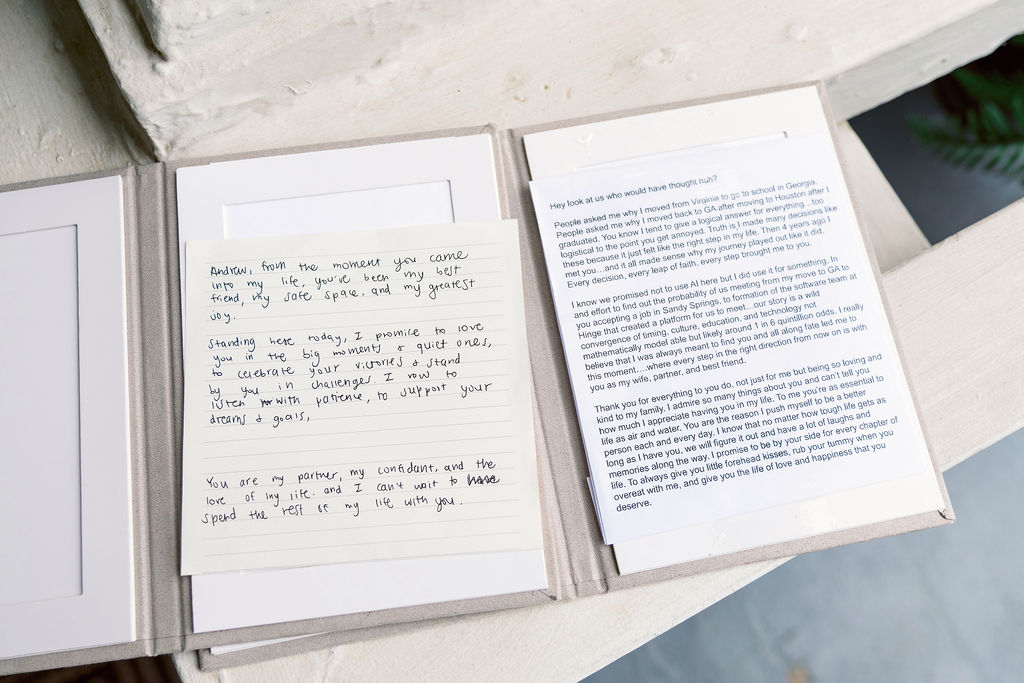 Andrew, from the moment you came
into my life, you've been my best
friend, my safe space, and my greatest
joy.
Standing here today, I promise to love
you in the big moments & quiet ones,
to celebrate your victories & stand
by you in challenges. I vow to
listen with patience, to support your
dreams & goals,
You are my partner, my confidant, and the
love of my life. and I can't wait to
spend the rest of my life with you.
Hey look at us who would have thought huh?
People asked me why I moved from Virginia to go to school in Georgia.
People asked me why I moved back to GA after moving to Houston after I
graduated. You know I tend to give a logical answer for everything...too
logistical to the point you get annoyed. Truth is,I made many decisions like
these because it just felt like the right step in my life. Then 4 years ago I
met you...and it all made sense why my journey played out like it did.
Every decision, every leap of faith, every step brought me to you.
I know we promised not to use AI here but I did use it for something. In
and effort to find out the probability of us meeting from my move to GA to
you accepting a job in Sandy Springs, to formation of the software team at
Hinge that created a platform for us to meet...our story is a wild
convergence of timing, culture, education, and technology not
mathematically model able but likely around 1 in 6 quintillion odds. I really
believe that I was always meant to find you and all along fate led me to
this moment....where every step in the right direction from now on is with
you as my wife, partner, and best friend.
Thank you for everything to you do, not just for me but being so loving and
kind to my family. I admire so many things about you and can't tell you
how much I appreciate having you in my life. To me you're as essential to
life as air and water. You are the reason I push myself to be a better
person each and every day. I know that no matter how tough life gets as
long as I have you, we will figure it out and have a lot of laughs and
memories along the way. I promise to be by your side for every chapter of
life. To always give you little forehead kisses, rub your tummy when you
overeat with me, and give you the life of love and happiness that you
deserve.